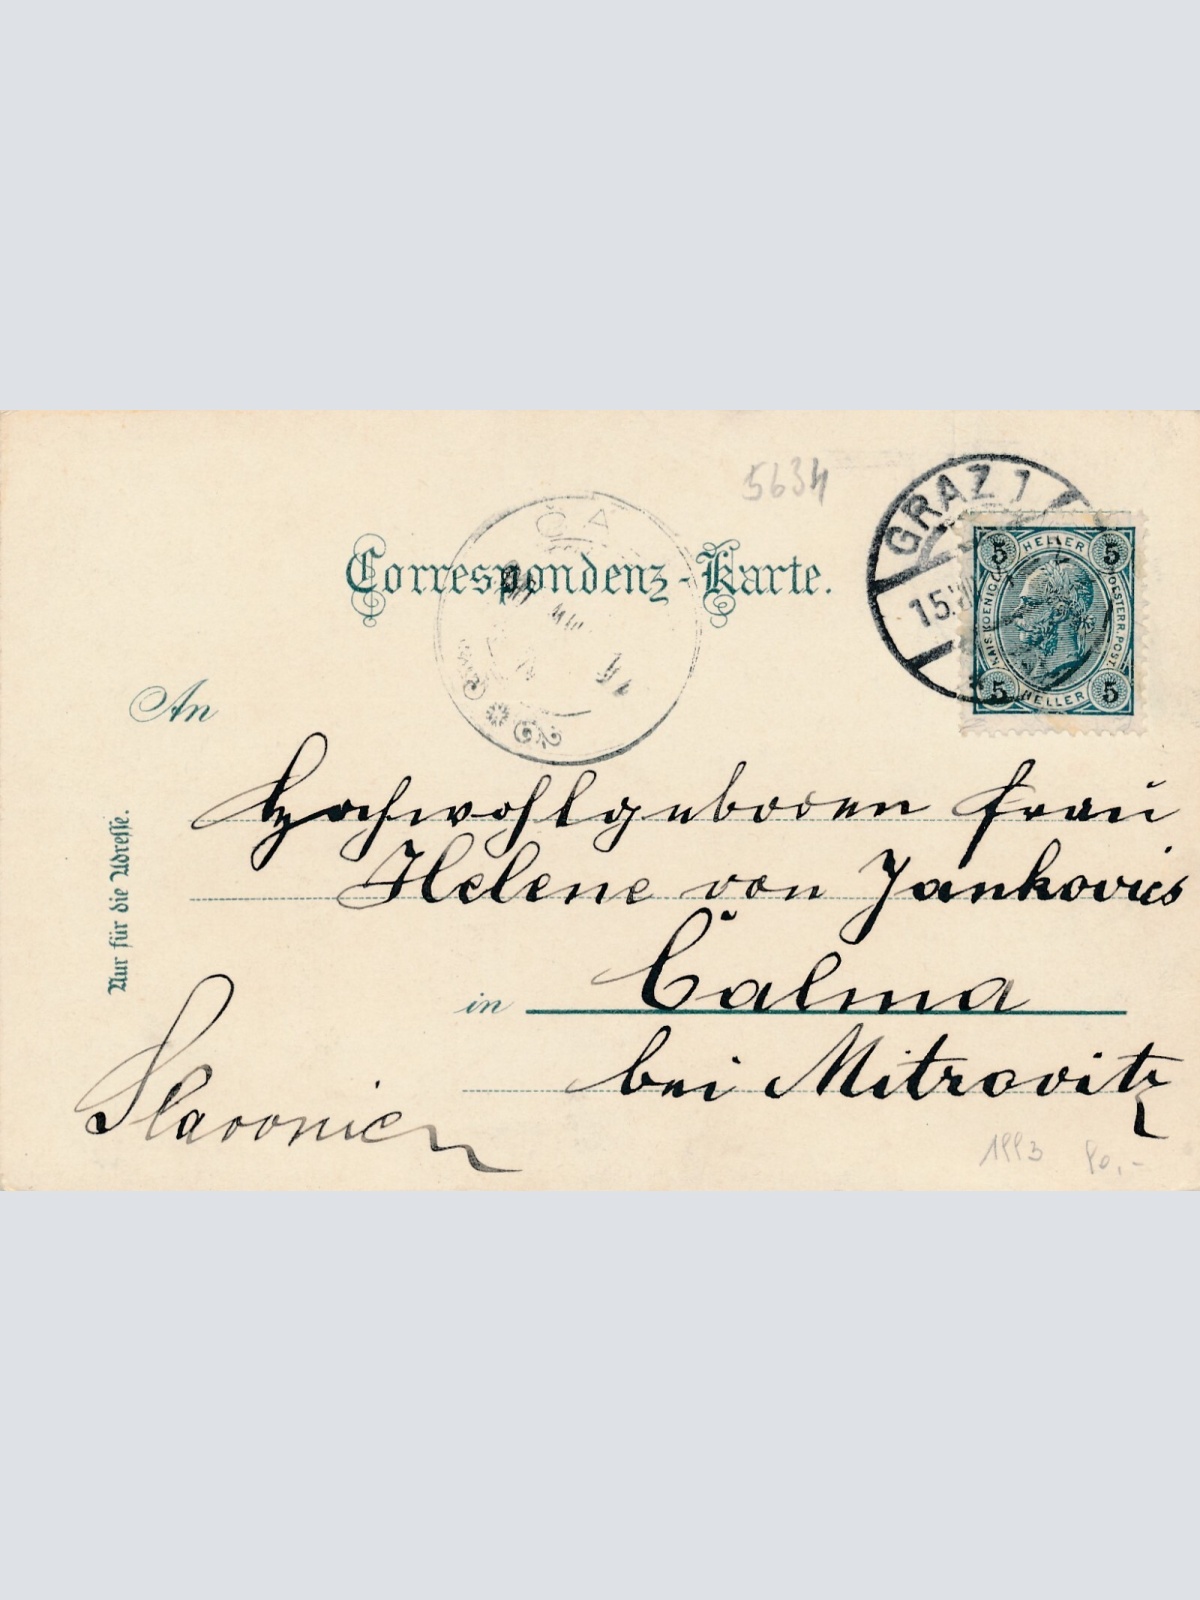 5634
GRAZ 1
15.
5 HELLER 5
KAIS. KOENIGL. OESTERR. POST.
5 HELLER 5
Correspondenz-Karte.
An
Hochwohlgeboren Frau
Helene von Jankovics
in Čalma
bei Mitrovitz
Slavonien
Nur für die Adresse.